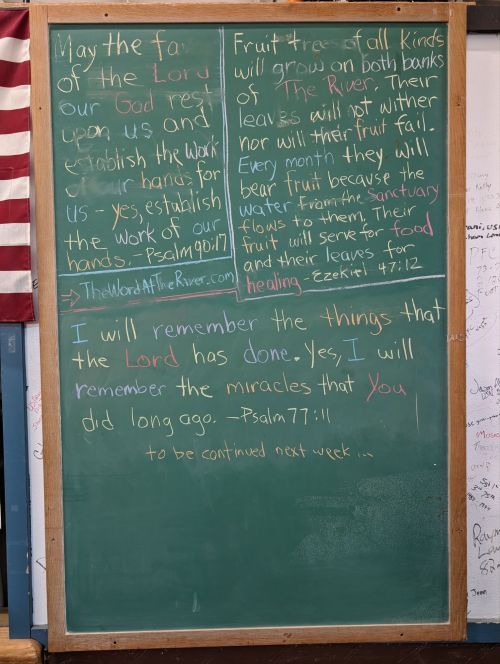 May the fa
of the Lord
our God rest
upon us and
establish the work
of our hands for
us - yes, establish
the work of our
hands. - Psalm 90:17
→ TheWordAtTheRiver.com
Fruit trees of all kinds
will grow on both banks
of The River. Their
leaves will not wither
nor will their fruit fail.
Every month they will
bear fruit because the
water from the Sanctuary
flows to them. Their
fruit will serve for food
and their leaves for
healing - Ezekiel 47:12
I will remember the things that
the Lord has done. Yes, I will
remember the miracles that You
did long ago. - Psalm 77:11
to be continued next week...